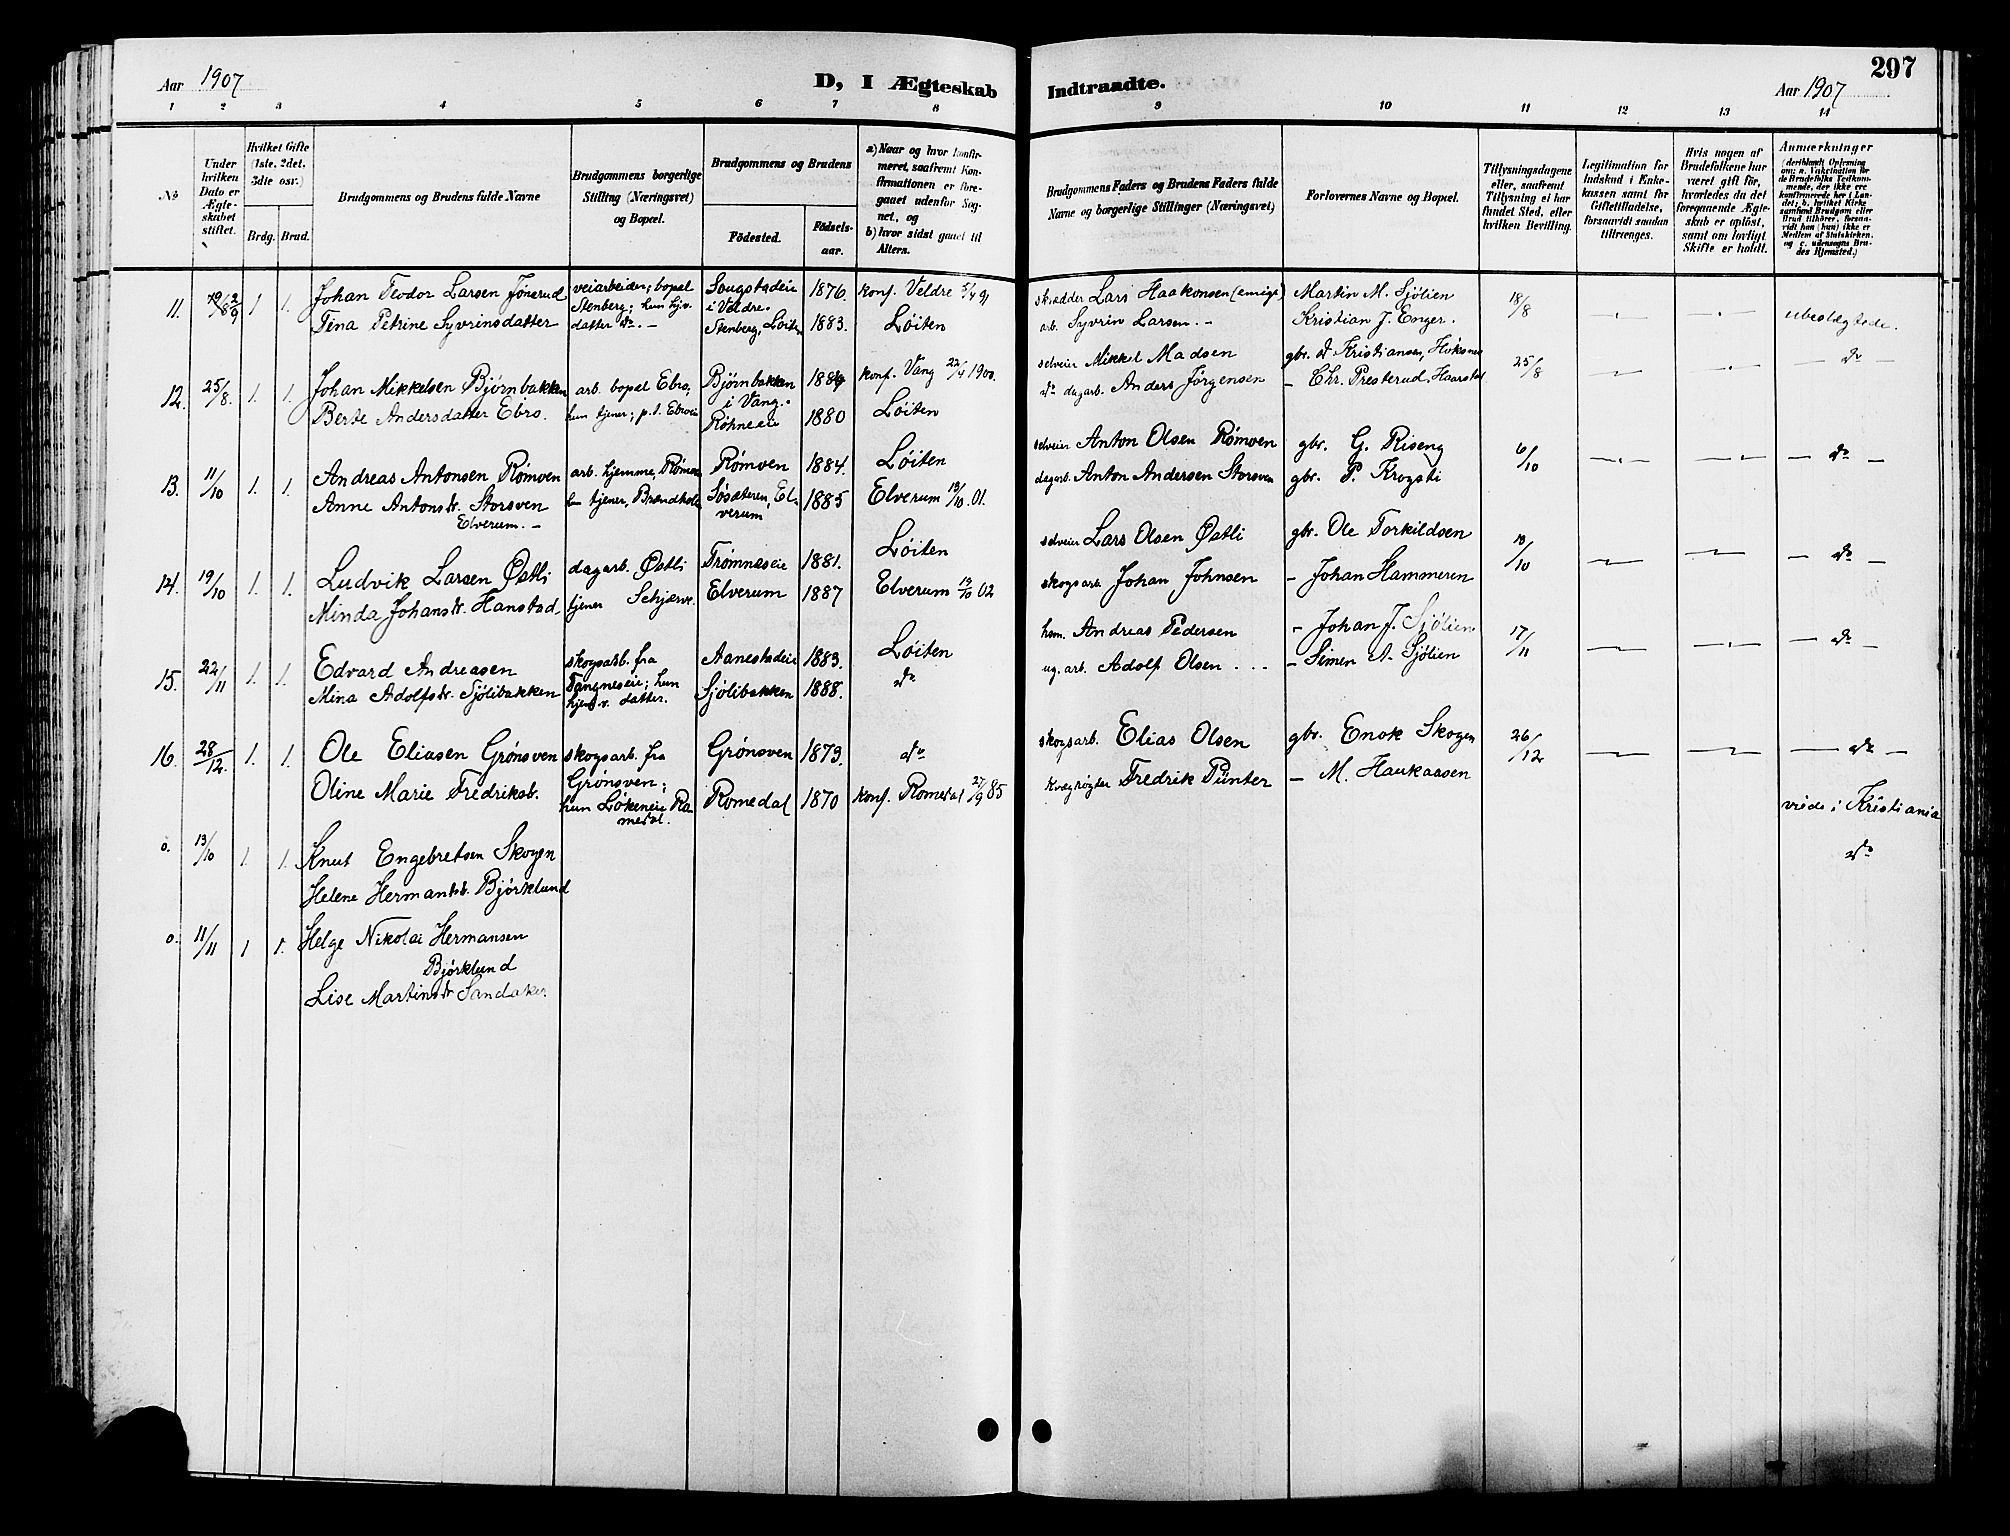 Aar 1907
D, I Ægteskab
Indtraadte.
297
Aar 1907
1 2 3 4 5 6 7 8 9 10 11 12 13 14
No
Under hvilken Dato er Ægteskabet stiftet.
Hvilket Gifte (1ste, 2det, 3die osv.)
Brdg. Brud.
Brudgommens og Brudens fulde Navne
Brudgommens borgerlige Stilling (Næringsvei) og Bopæl.
Brudgommens og Brudens
Födested.
Födselsaar.
a) Naar og hvor konfirmeret, saafremt Konfirmationen er foregaaet udenfor Sognet, og
b) hvor sidst gaaet til Alters.
Brudgommens Faders og Brudens Faders fulde Navne og borgerlige Stillinger (Næringsvei)
Forlovernes Navne og Bopæl.
Tillysningsdagene eller, saafremt Tillysning ei har fundet Sted, efter hvilken Bevilling.
Legitimation for Indskud i Enkekassen samt for Giftetilladelse, forsaavidt saadan tiltrænges.
Hvis nogen af Brudefolkene har været gift før, hvorledes da det foregaaende Ægteskab er opløst, samt om lovligt Skifte er holdt.
Anmærkninger
(deriblandt Oplysning om: a. Vakcination for de Brudefolks Vedkommende, der ikke ere konfirmerede her i Landet; b. hvilket Kirkesamfund Brudgom eller Brud tilhører, forsaavidt han (hun) ikke er Medlem af Statskirken, og c. udensogns Brudes Hjemsted.)
11. 2/9 1. 1. Johan Teodor Larsen Jønerud
Tina Petrine Syvrinsdatter
veiarbeider; bopæl
Stenberg; hun hjv.
datter do. -
Sougstadeie
i Veldre.
Stenberg, Løiten
1876.
1883.
konf. Veldre 5/4 91
Løiten
skrædder Lars Haakonsen (emige)
arb. Syvrin Larsen. -
Martin M. Sjølien
Kristian J. Enger.
18/8
ubeslægtede.
12. 25/8. 1. 1. Johan Mikkelsen Bjørnbakken
Berte Andersdatter Ebro.
arb. bopæl Ebro;
hun tjener; p.t. Ebroeie
Bjørnbakken
i Vang.
Røhneeie
1880
konf. Vang 22/4 1900.
Løiten
selveier Mikkel Madsen
do dagarb. Anders Jørgensen
gbr. Kristiansen, Høksnes
- Chr. Presterud, Haarstad
25/8
- do -
13. 11/10 1. 1. Andreas Antonsen Rømoen
Anne Antonsdr. Storsven
Elverum. -
arb. hjemme, Rømoen
hun tjener, Brændholen
Rømoen
Søsæteren, Elverum
1884.
1885
Løiten
Elverum 13/10. 01.
selveier Anton Olsen Rømoen
dagarb. Anton Andersen Storsven
gbr. G. Riseng
gbr. P. Krogsti
6/10
- do -
14. 19/10 1. 1. Ludvik Larsen Østli
Minda Johansdr. Hanstad.
dagarb. Østli
tjener Schjærve.
Trømnæseie
Elverum
1881.
1887
Løiten
Elverum 02
selveier Lars Olsen Østli
skogsarb. Johan Johnsen
gbr. Ole Torkildsen
- Johan Hammeren
13/10
- do -
15. 22/11 1. 1. Edvard Andreasen
Mina Adolfsdr. Sjølibakken
skogsarb. fra
Tangneseie; hun
hjem v. datter.
Aanestadeie
Sjølibakken
1883.
1888.
Løiten
do
hsm. Andreas Pedersen
ug. arb. Adolf Olsen . . -
- Johan J. Sjølien
- Simen A. Sjølien
17/11
- do -
16. 28/12. 1. 1. Ole Eliasen Grønsven
Oline Marie Fredriksd.
skogsarb. fra
Grønsven;
hun Løkeneie Romedal.
Grønsven
Romedal
1873.
1870
do
konf. Romedal 27/9 85
skogsarb. Elias Olsen
kvægrøgter Fredrik Pünter
gbr. Enok Skogen
- M. Haukaasen
26/12
- do -
o. 13/10 1. 1. Knut Engebretsen Skogen
Helene Hermansd. Bjørklund
viede i Kristiania
o. 11/11 1 1. Helge Nikolai Hermansen
Bjørklund
Lise Martinsdr Sandaker.
do